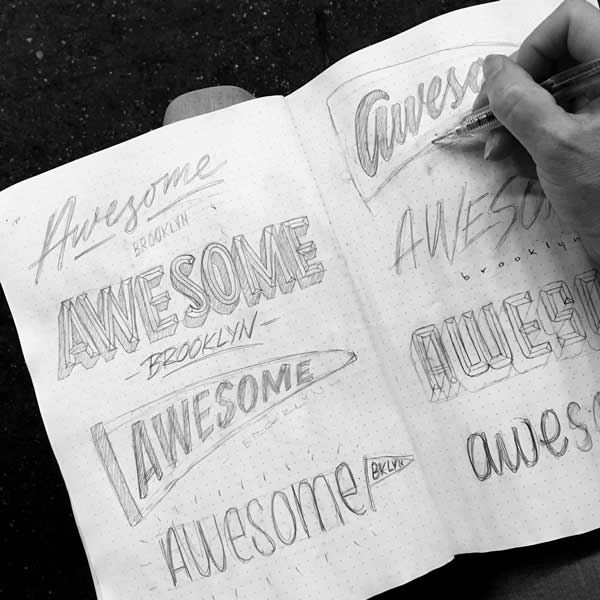 Awesome
BROOKLYN
AWESOME
-BROOKLYN-
AWESOME
BROOKLYN
AWesome BKLYN
aweso
AWESO
brooklyn
AWESO
aweso